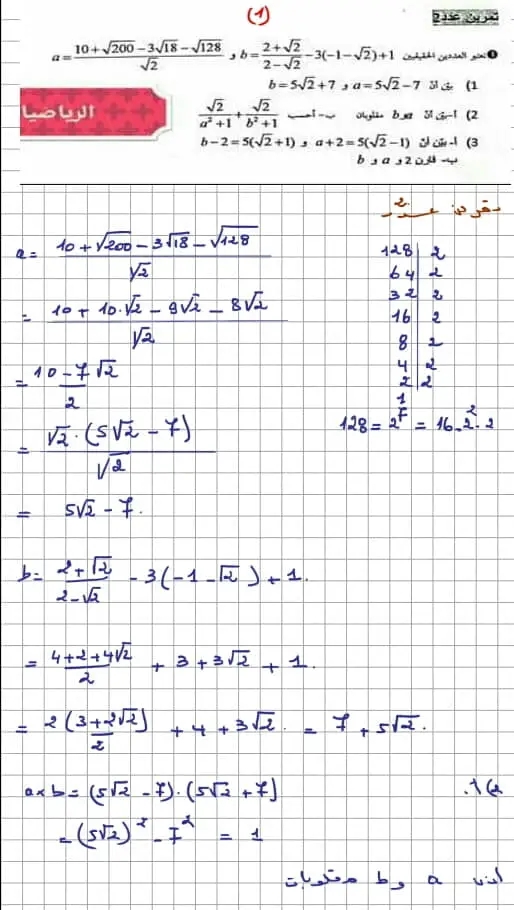 (1)
تمرين عدد2
❶ نعتبر العددين الحقيقيين b = \frac{2+\sqrt{2}}{2-\sqrt{2}} - 3(-1-\sqrt{2}) + 1 و a = \frac{10+\sqrt{200}-3\sqrt{18}-\sqrt{128}}{\sqrt{2}}
1) بيّن أنّ a = 5√2 − 7 و b = 5√2 + 7
2) أ- بيّن أنّ a و b مقلوبان ب- أحسب \frac{\sqrt{2}}{a^2+1} + \frac{\sqrt{2}}{b^2+1}
3) أ- بيّن أنّ a + 2 = 5(√2 − 1) و b − 2 = 5(√2 + 1)
ب- قارن 2 و a و b
الرياضيا
تمرين عدد 2
a = \frac{10+\sqrt{200}-3\sqrt{18}-\sqrt{128}}{\sqrt{2}}
= \frac{10+10.\sqrt{2}-9\sqrt{2}-8\sqrt{2}}{\sqrt{2}}
= \frac{10-7\sqrt{2}}{2}
= \frac{\sqrt{2}.(5\sqrt{2}-7)}{\sqrt{2}}
= 5√2 − 7.
128 | 2
64 | 2
32 | 2
16 | 2
8 | 2
4 | 2
2 | 2
1
128 = 2⁷ = 16.2².2
b = \frac{2+\sqrt{2}}{2-\sqrt{2}} - 3(-1-\sqrt{2}) + 1.
= \frac{4+2+4\sqrt{2}}{2} + 3 + 3√2 + 1.
= \frac{2(3+2\sqrt{2})}{2} + 4 + 3√2. = 7 + 5√2.
2) أ.
a × b = (5√2 − 7).(5√2 + 7)
= (5√2)² − 7² = 1
إذن a و b مقلوبات